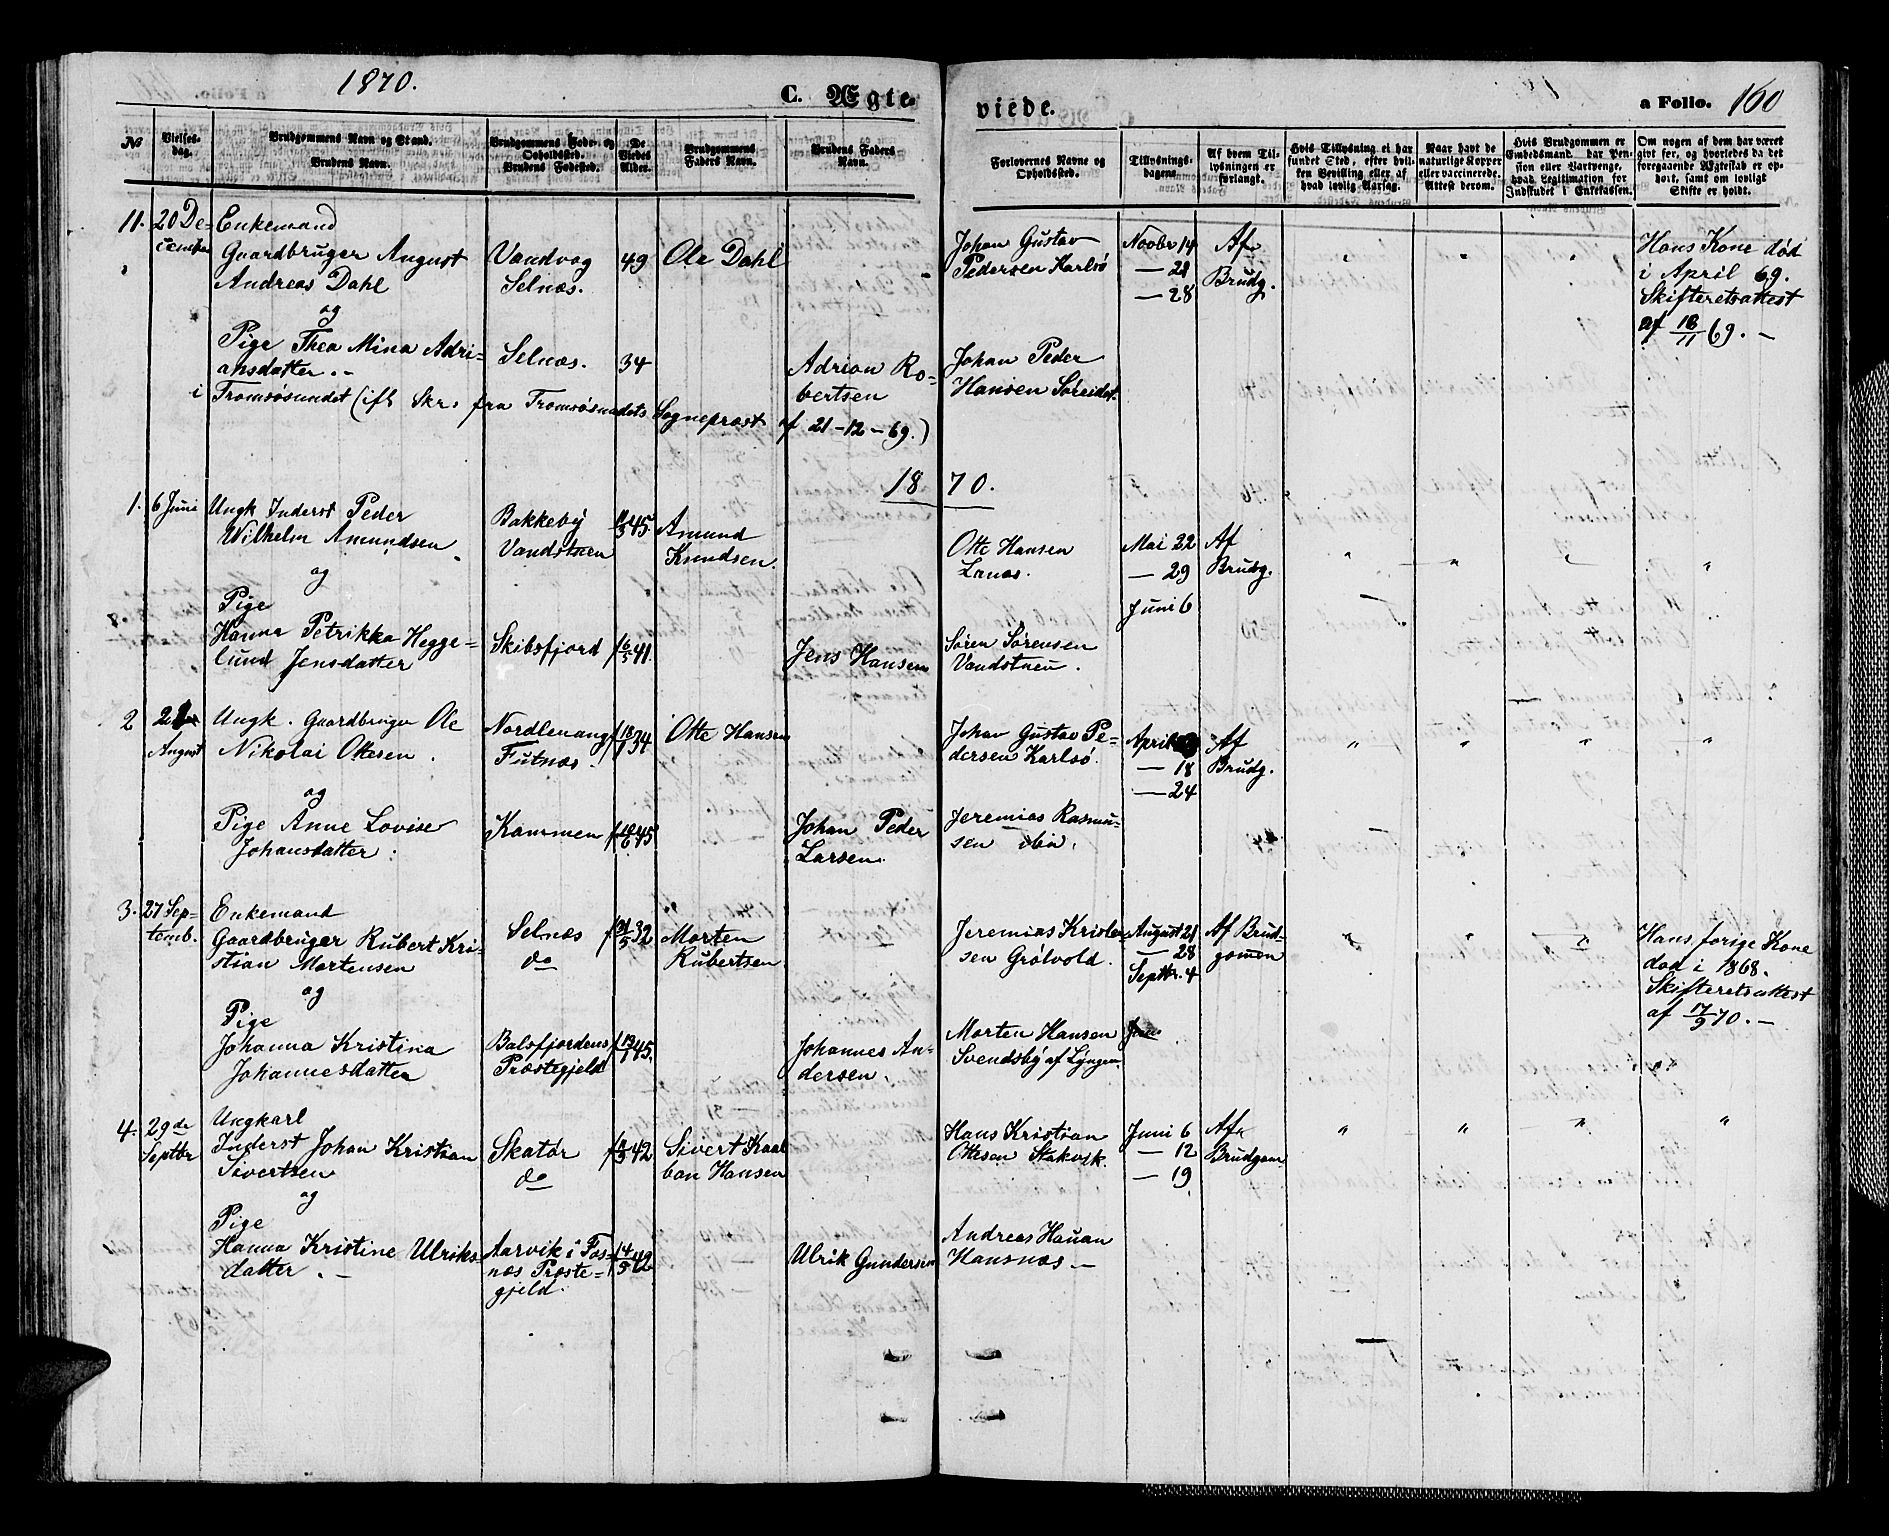 1870.
C. Ægte
viede.
a Folio. 160
No
Vielses-
dag.
Brudgommens Navn og Stand.
Brudens Navn.
Brudgommens Føde- og
Opholdssted.
Brudens Fødested.
De
Viedes
Alder.
Brudgommens
Faders Navn.
Brudens Faders
Navn.
Forlovernes Navne og
Opholdssted.
Tillysnings-
dagene.
Af hvem Til-
lysningen er
forlangt.
Hvis Tillysning ei har
fundet Sted, efter hvil-
ken Bevilling eller af
hvad lovlig Aarsag.
Naar havt de
naturlige Kopper
eller vaccinerede.
Attest derom.
Hvis Brudgommen er
Embedsmand, har Pen-
sion eller Vartpenge,
hvad Legitimation for
Indskudet i Enkekassen.
Om nogen af dem har været
gift før, og hvorledes da det
foregaaende Ægteskab er op-
hørt, samt om lovligt
Skifte er holdt.
11.
20 De-
cember
Enkemand
Gaardbruger August
Andreas Dahl
og
Pige Thea Mina Adri-
ansdatter.-
Vandvag
Selnæs.
Selnæs.
49
34
Ole Dahl
Adrian Ro-
bertsen
Johan Gustav
Pedersen Karlsø
Johan Peder
Hansen Søreidet
Novbr 14
— 21
— 28
Af
Brudg.
Hans Kone død
i April 69.
Skifteretsattest
af 16/11 69. -
i Tromsøsundet (ifl Skr. fra Tromsøsundets Sogneprest af 21-12-69.)
1870.
1.
6 Juni
Ungk Inderst Peder
Wilhelm Amundsen
og
Pige
Hanna Petrikka Hegge-
lund Jensdatter
Bakkeby
Vandstuen
Skibsfjord
45
f 6/5 41.
Amund
Knudsen.
Jens Hansen
Otte Hansen
Lanes.
Søren Sørensen
Vandstuen.
Mai 22
— 29
Juni 6
Af
Brudg.
2
21
August
Ungk. Gaardbruger Ole
Nikolai Ottesen.
og
Pige Anne Lovise
Johansdatter.
Nordlenang
Futnæs.
Kammen
f 18/1 34
45
Otte Hansen
Johan Peder
Larsen.
Johan Gustav Pe-
dersen Karlsø.
Jeremias Rasmu-
sen ibid.
April
— 18
— 24
Af
Brudg.
3.
27 Sep-
temb.
Enkemand
Gaardbruger Rubert Kri-
stian Mortensen
og
Pige
Johanna Kristina
Johannesdatter
Selnæs
do
Balsfjordens
Præstegjeld
32
f 13/1 45.
Morten
Rubertsen
Johannes An-
dersen.
Jeremias Kristen-
sen Grølvold.
Morten Hansen
Svendsby af Lyngen
August 21
— 28
Septbr. 4
Af Brud-
gommen
Hans forige Kone
død i 1868.
Skifteretsattest
af 17/9 70. -
4.
29de
Septbr
Ungkarl
Inderst Johan Kristian
Sivertsen
og
Pige
Hanna Kristine Ulriks-
datter. -
Skatør
do
Aarvik i Fos-
næs Præste-
gjeld.
42
f 14/5 42
Sivert Kaal
ban Hansen
Ulrik Gundersen
Hans Kristian
Ottesen Stakvik.
Andreas Hauan
Hansnæs -
Juni 6
— 12
— 19
Af
Brudgom